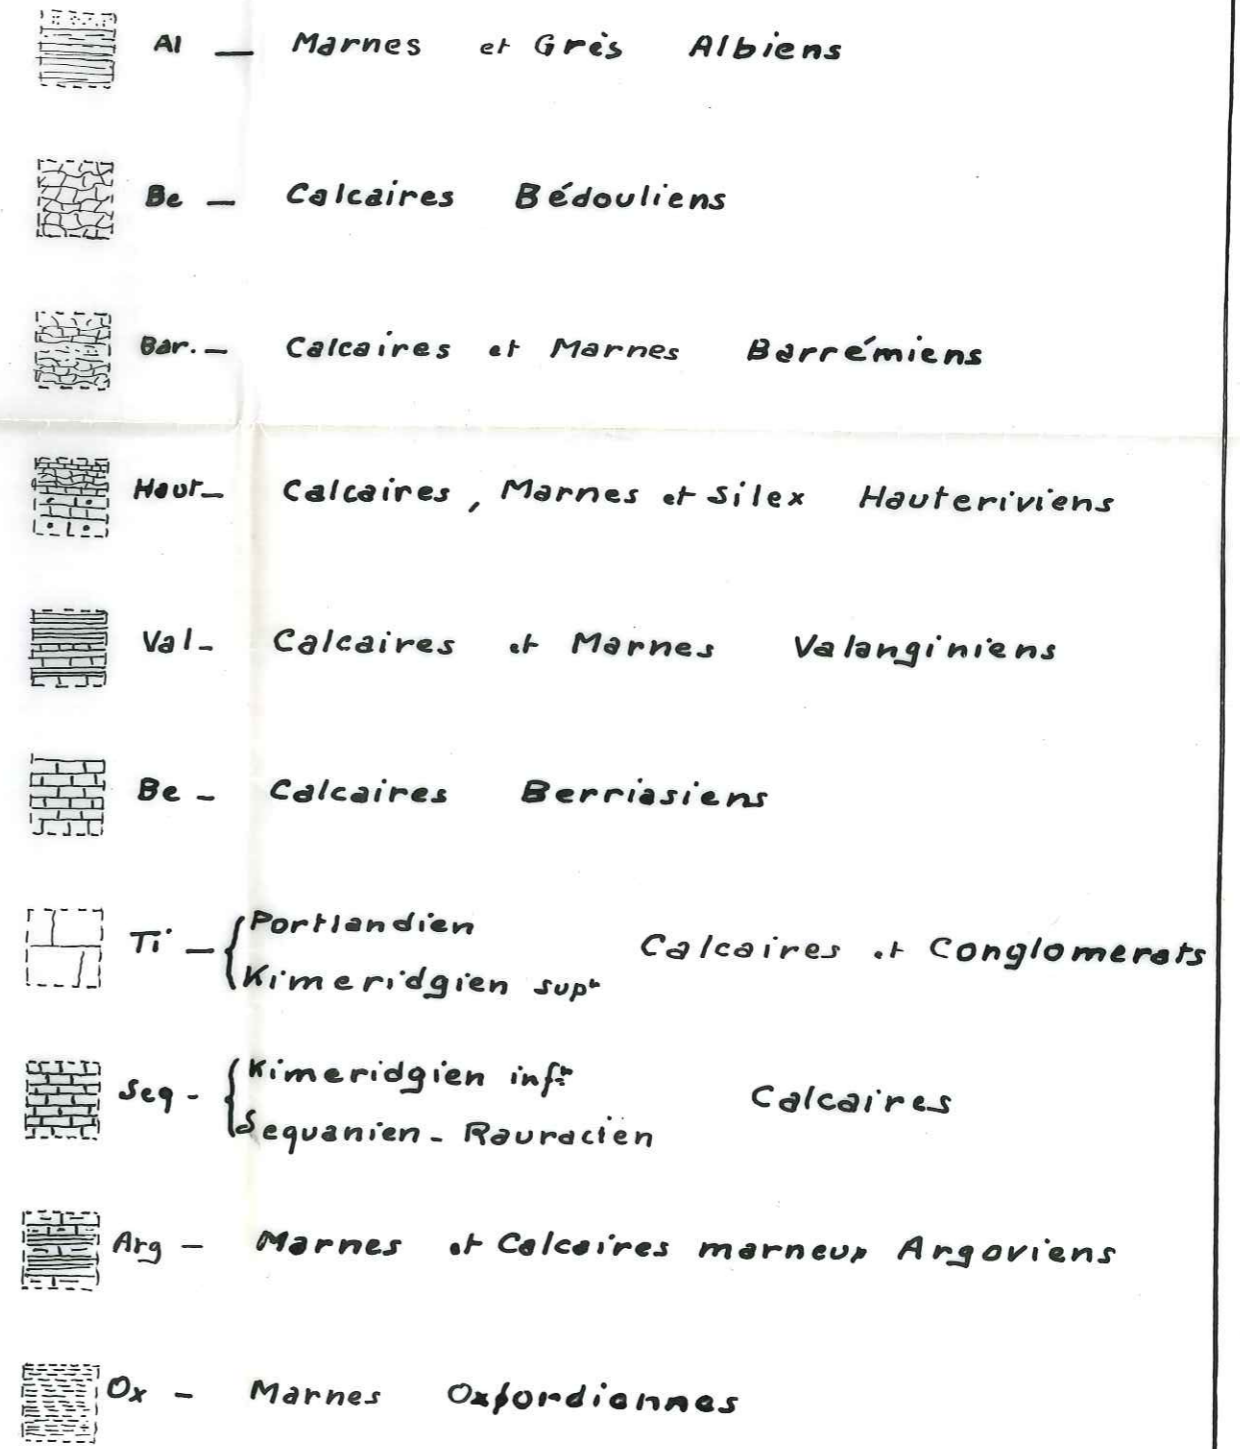 Al — Marnes et Grès Albiens
Be — Calcaires Bédouliens
Bar. — Calcaires et Marnes Barrémiens
Haut — Calcaires, Marnes et Silex Hauteriviens
Val - Calcaires et Marnes Valanginiens
Be - Calcaires Berriasiens
Ti - { Portlandien
Kimeridgien supr Calcaires et Conglomerats
Seq - { Kimeridgien infr
Sequanien - Rauracien Calcaires
Arg - Marnes et Calcaires marneux Argoviens
Ox - Marnes Oxfordiennes